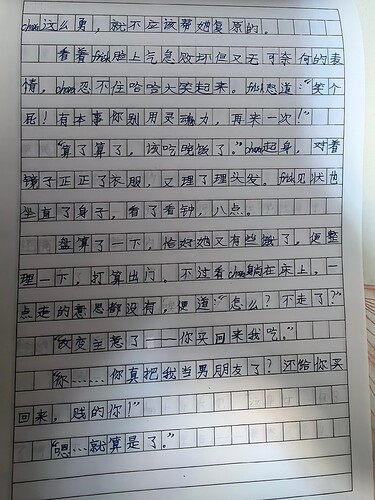 chan这么勇，就不应该帮她复原的。
看着fish脸上气急败坏但又无可奈何的表
情，chan忍不住哈哈大笑起来。fish怒道：“笑个
屁！有本事你别用灵魂力，再来一次！”
“算了算了，该吃晚饭了。”chan起身，对着
镜子正正了衣服，又理了理头发。fish见状也
坐直了身子，看了看钟，八点。
盘算了一下，恰好她又有些饿了，便整
理一下，打算出门。不过看chan躺在床上，一
点走的意思都没有，便道：“怎么？不走了？”
“改变主意了——你买回来我吃。”
“你……你真把我当男朋友了？还给你买
回来，贱的你！”
“嗯…就算是了。”